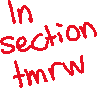 In
section
tmrw